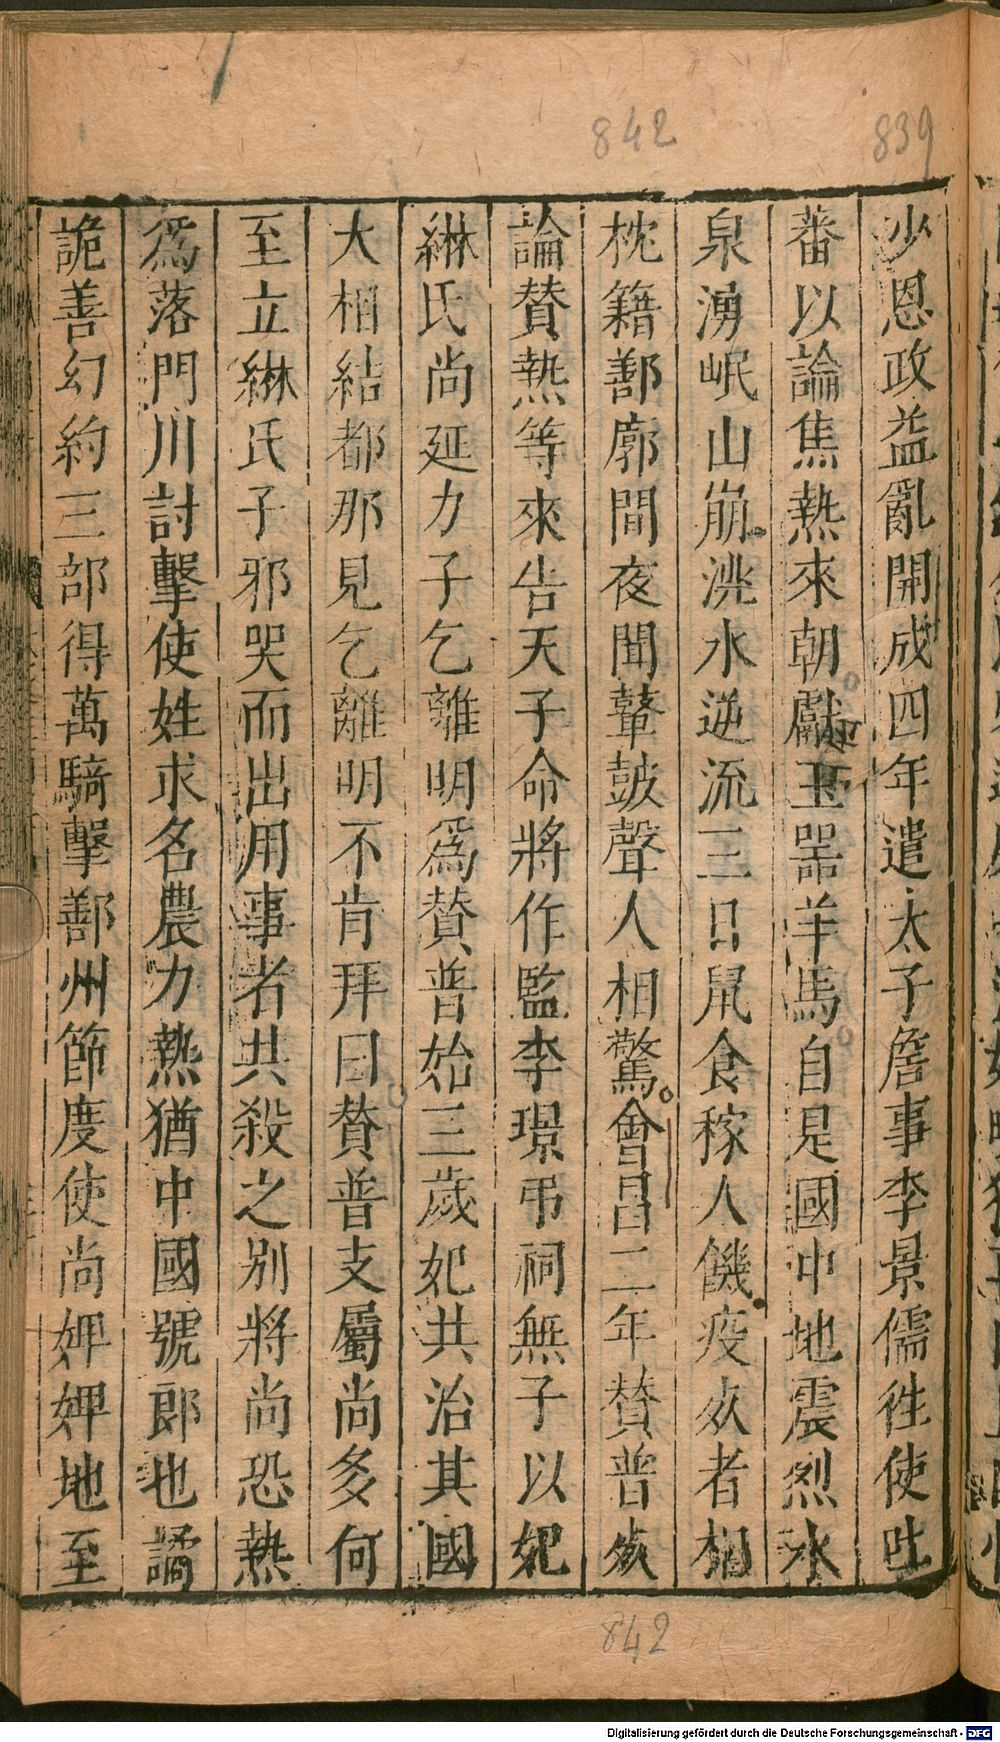 少恩政益亂開成四年遣太子詹事李景儒徃使吐
蕃以論焦熱來朝獻玉噐羊馬自是國中地震烈水
泉湧岷山崩洮水逆流三日鼠食稼人饑疫死者相
枕籍鄯廓間夜聞鼙鼓聲人相驚會昌二年贊普死
論贊熱等來告天子命將作監李璟弔祠無子以妃
綝氏尚延力子乞離明爲贊普始三歲妃共治其國
大相結都那見乞離明不肯拜曰贊普支屬尚多何
至立綝氏子邪哭而出用事者共殺之别將尚恐熱
爲落門川討擊使姓求名農力熱猶中國號郎也譎
詭善幻約三部得萬騎擊鄯州節度使尚婢婢地至
842
839
842
Digitalisierung gefördert durch die Deutsche Forschungsgemeinschaft - DFG